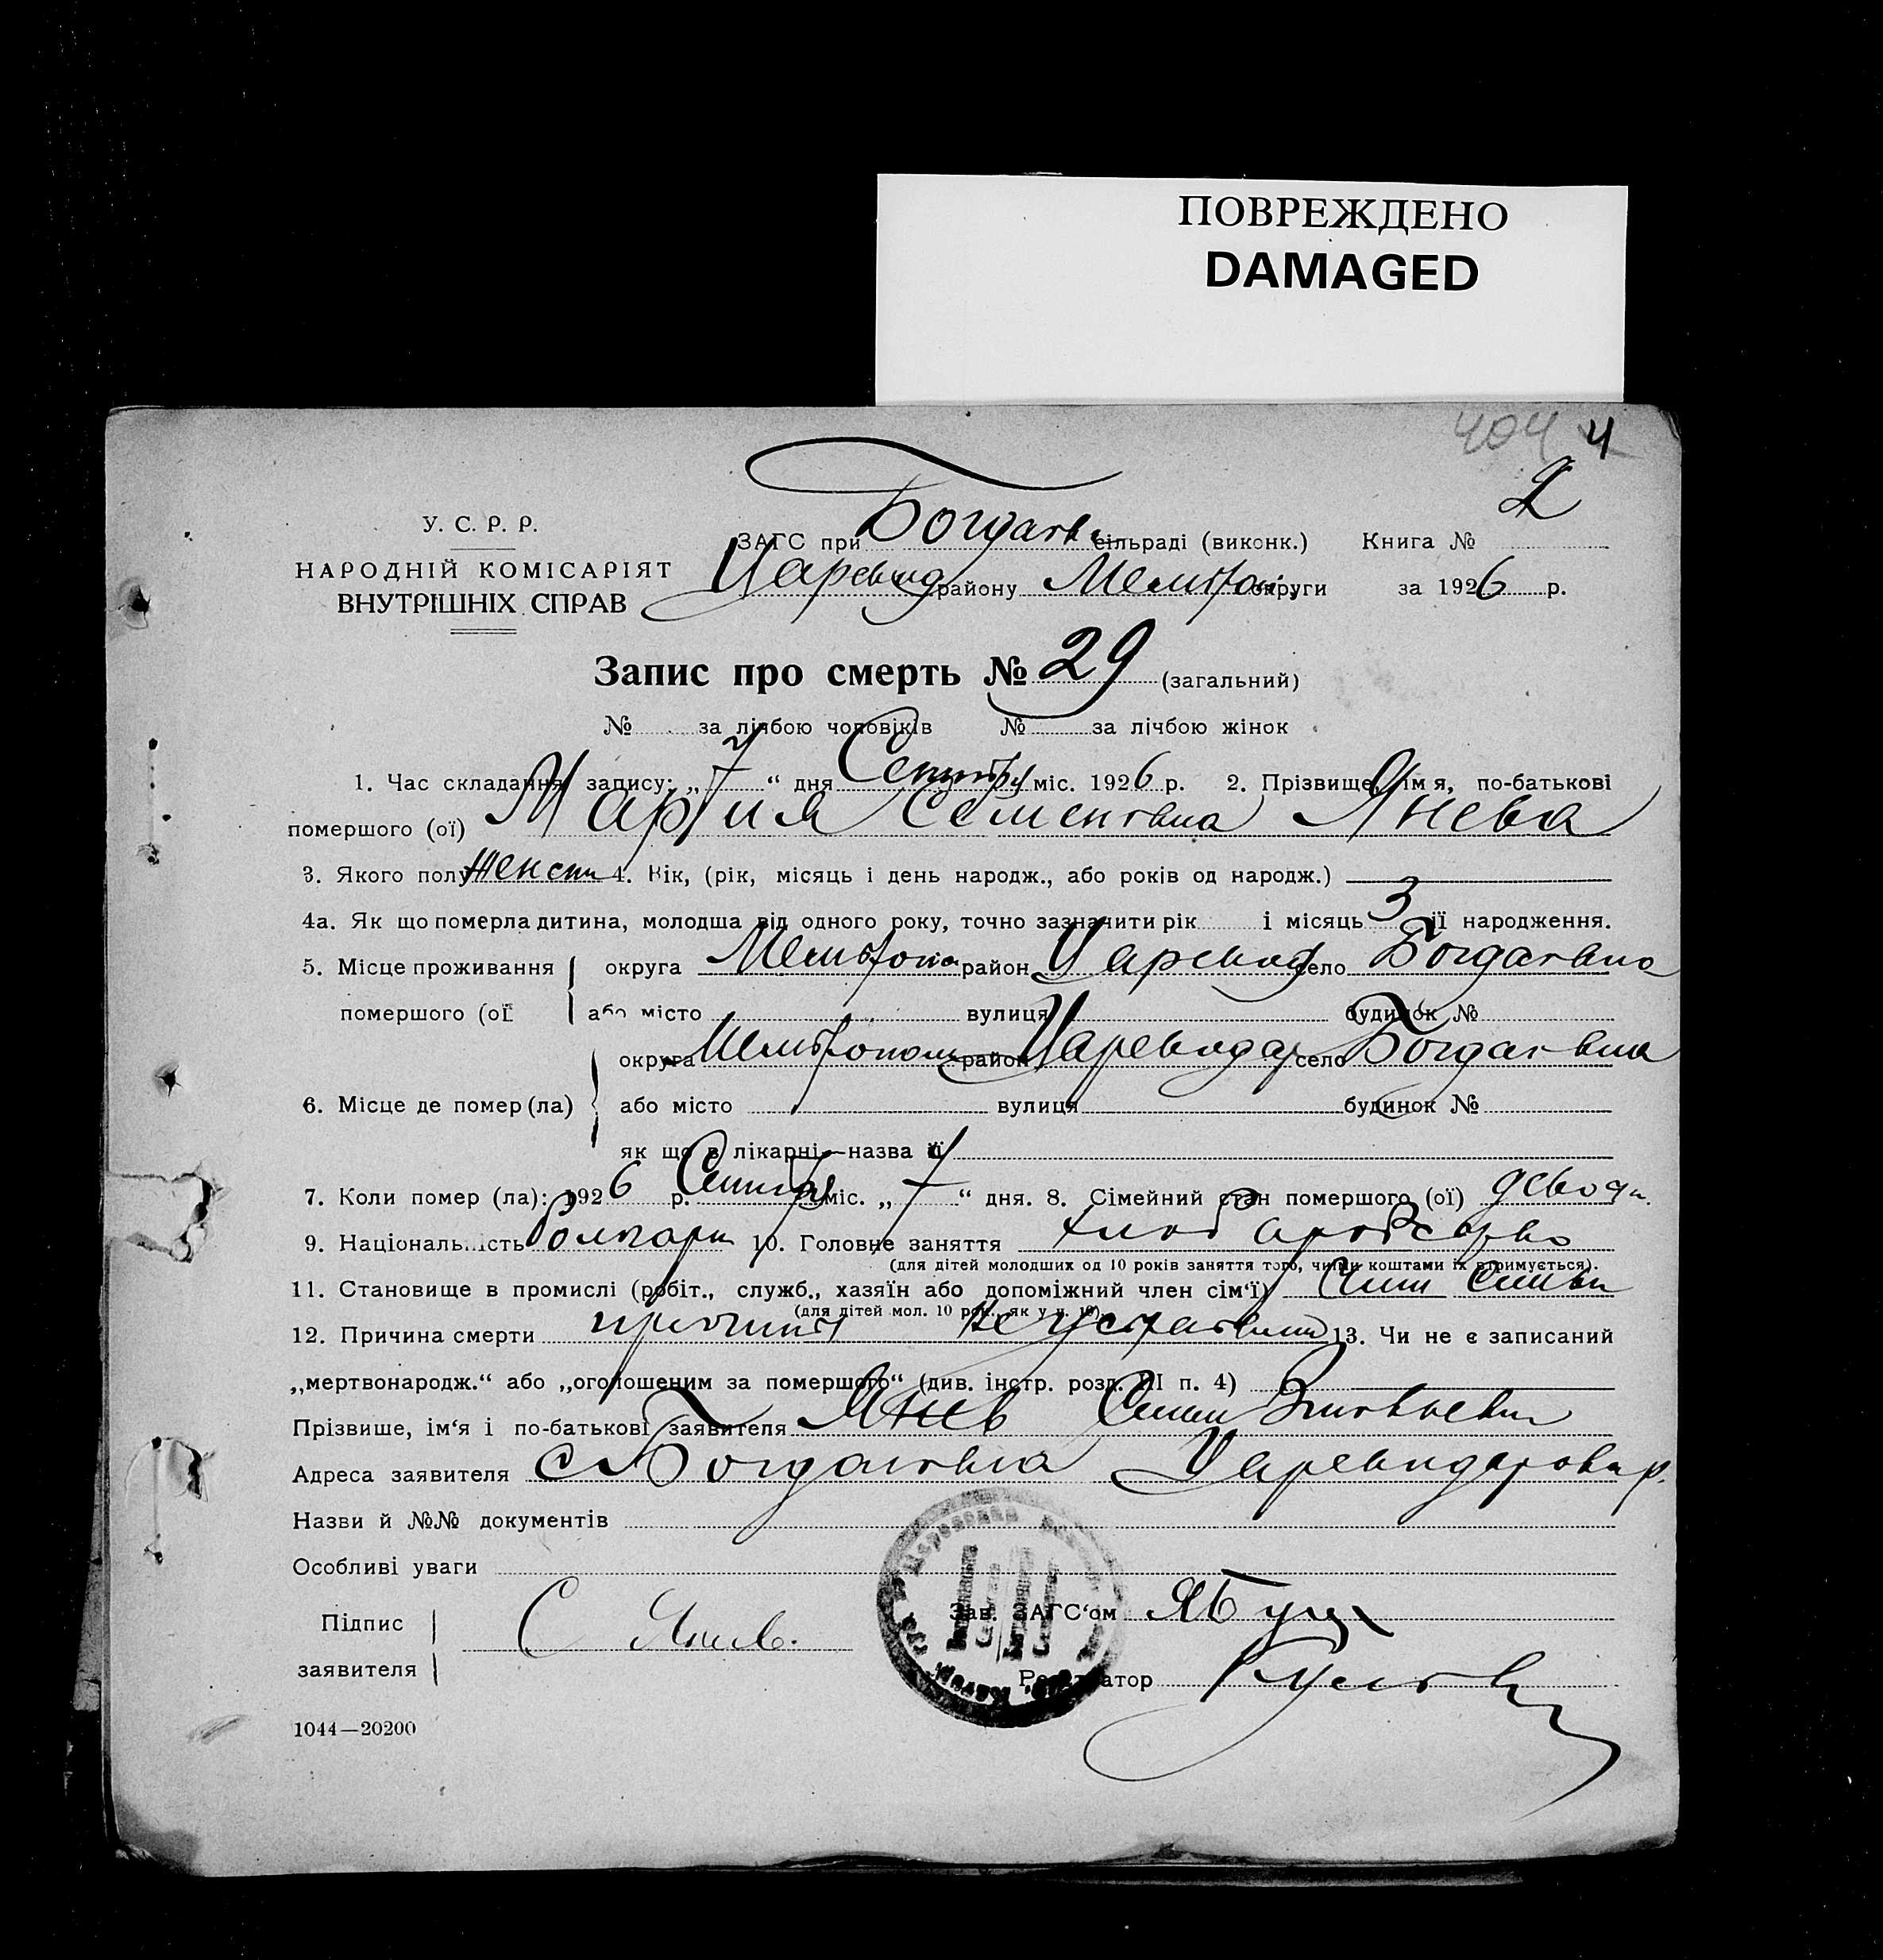 ПОВРЕЖДЕНО
DAMAGED
404 4
2
У. С. Р. Р.
НАРОДНІЙ КОМІСАРІЯТ
ВНУТРІШНІХ СПРАВ
ЗАГС при Богданв сільраді (виконк.) Книга №
Царевод району Мелитоп. округи за 1926 р.
Запис про смерть № 29 (загальний)
№ за лічбою чоловіків № за лічбою жінок
1. Час складання запису: „ 7 “ дня Сентября міс. 1926 р. 2. Прізвище, ім я, по-батькові
помершого (ої) Мария Семеновна Янева
3. Якого полу Женск 4. Вік, (рік, місяць і день народж., або років од народж.)
4а. Як що померла дитина, молодша від одного року, точно зазначити рік і місяць 3 її народження.
5. Місце проживання округа Мелитопо район Царевод село Богдановка
помершого (ої або місто вулиця будинок №
округа Мелитополь район Царевода село Богдановка
6. Місце де помер (ла) або місто вулиця будинок №
як що в лікарні—назва її
7. Коли помер (ла): 1926 р. Сентяб міс. „ 7 “ дня. 8. Сімейний стан помершого (ої) девочк
9. Національність болгарк 10. Головне заняття хлебаробство
(для дітей молодших од 10 років заняття того, чиїми коштами їх втримується).
11. Становище в промислі (робіт., служб., хазяїн або допоміжний член сім‘ї) Член Семьи
(для дітей мол. 10 рок., як у п. 10)
12. Причина смерти 13. Чи не є записаний
„мертвонародж.“ або „оголошеним за помершого“ (див. інстр. розд. III п. 4)
Прізвише, ім‘я і по-батькові заявителя Янев Семен Зиновьевич
Адреса заявителя с Богдановка Цареводаровск р.
Назви й №№ документів
Особливі уваги
Підпис
заявителя
С Янев.
Зав. ЗАГС‘ом
Реєстратор
1044—20200